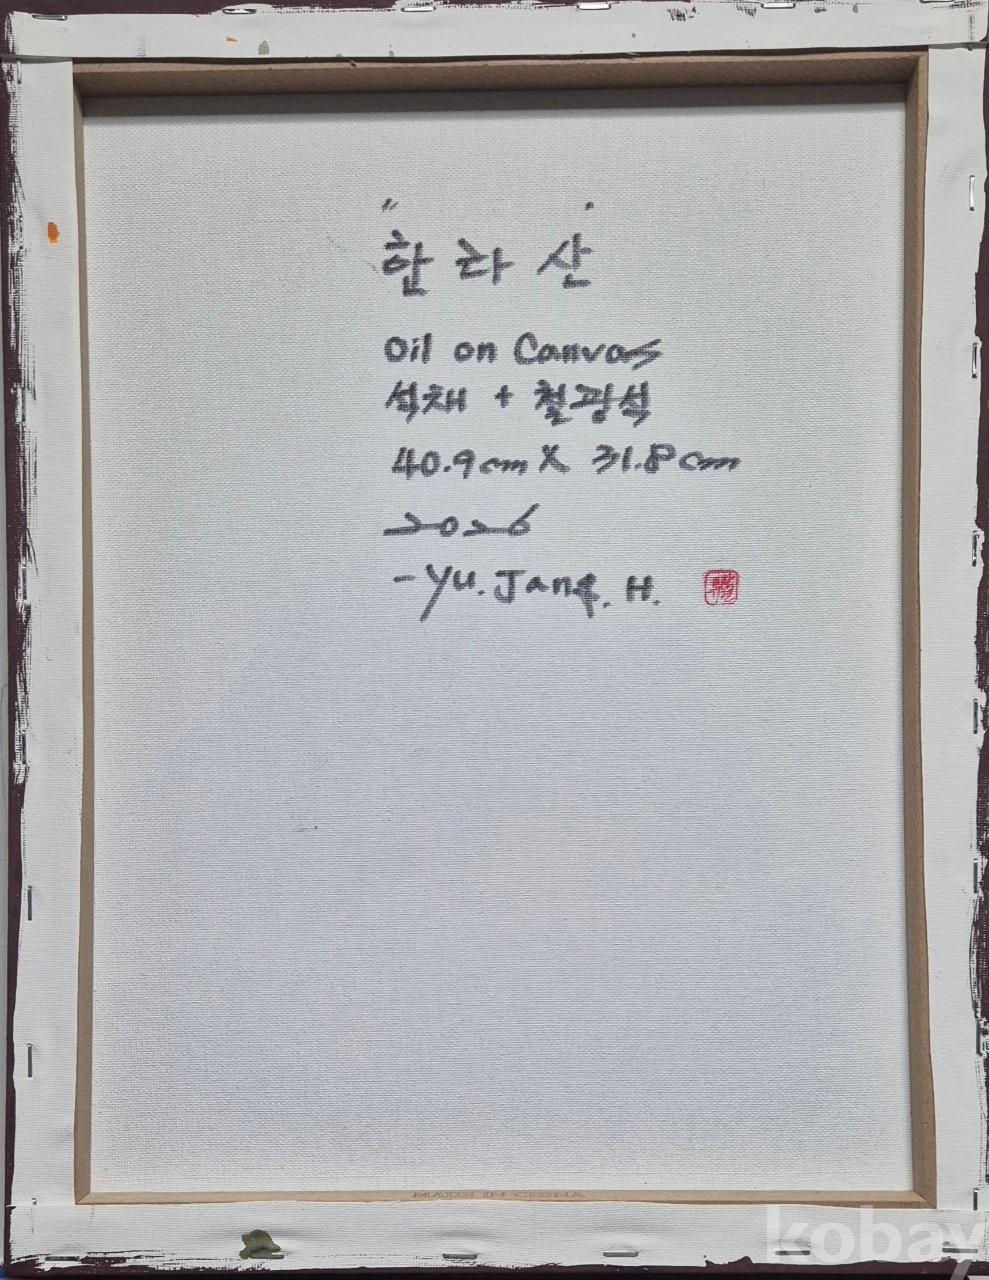 "한라산"
Oil on Canvas
석채 + 철광석
40.9cm X 31.8cm
2026
-Yu. Jang. H.
MADE IN CHINA
kobay